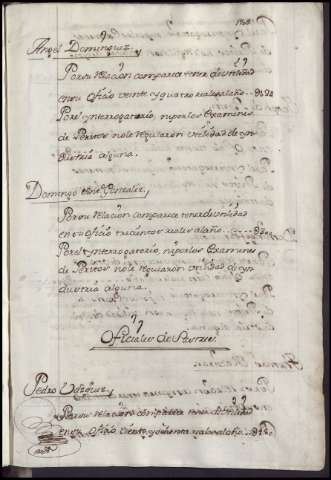 Angel Dominguez
Por su relacion comparece tener de utilidad
en su oficio veinte y quatro reales al año
Por el ynterrogatorio, ni por los Examenes
de Peritos no le regularon utilidad de yn
dustria alguna.
Domingo Gonzalez,
Por su relacion comparece tener de utilidad
en su oficio trecientos reales al año
Por el ynterrogatorio, ni por los Examenes
de Peritos no le regularon utilidad de yn
dustria alguna.
Oficiales de Sastre
Pedro Vazquez,
Por su relacion comparece tener de utilidad
en su oficio ciento y ochenta reales al año